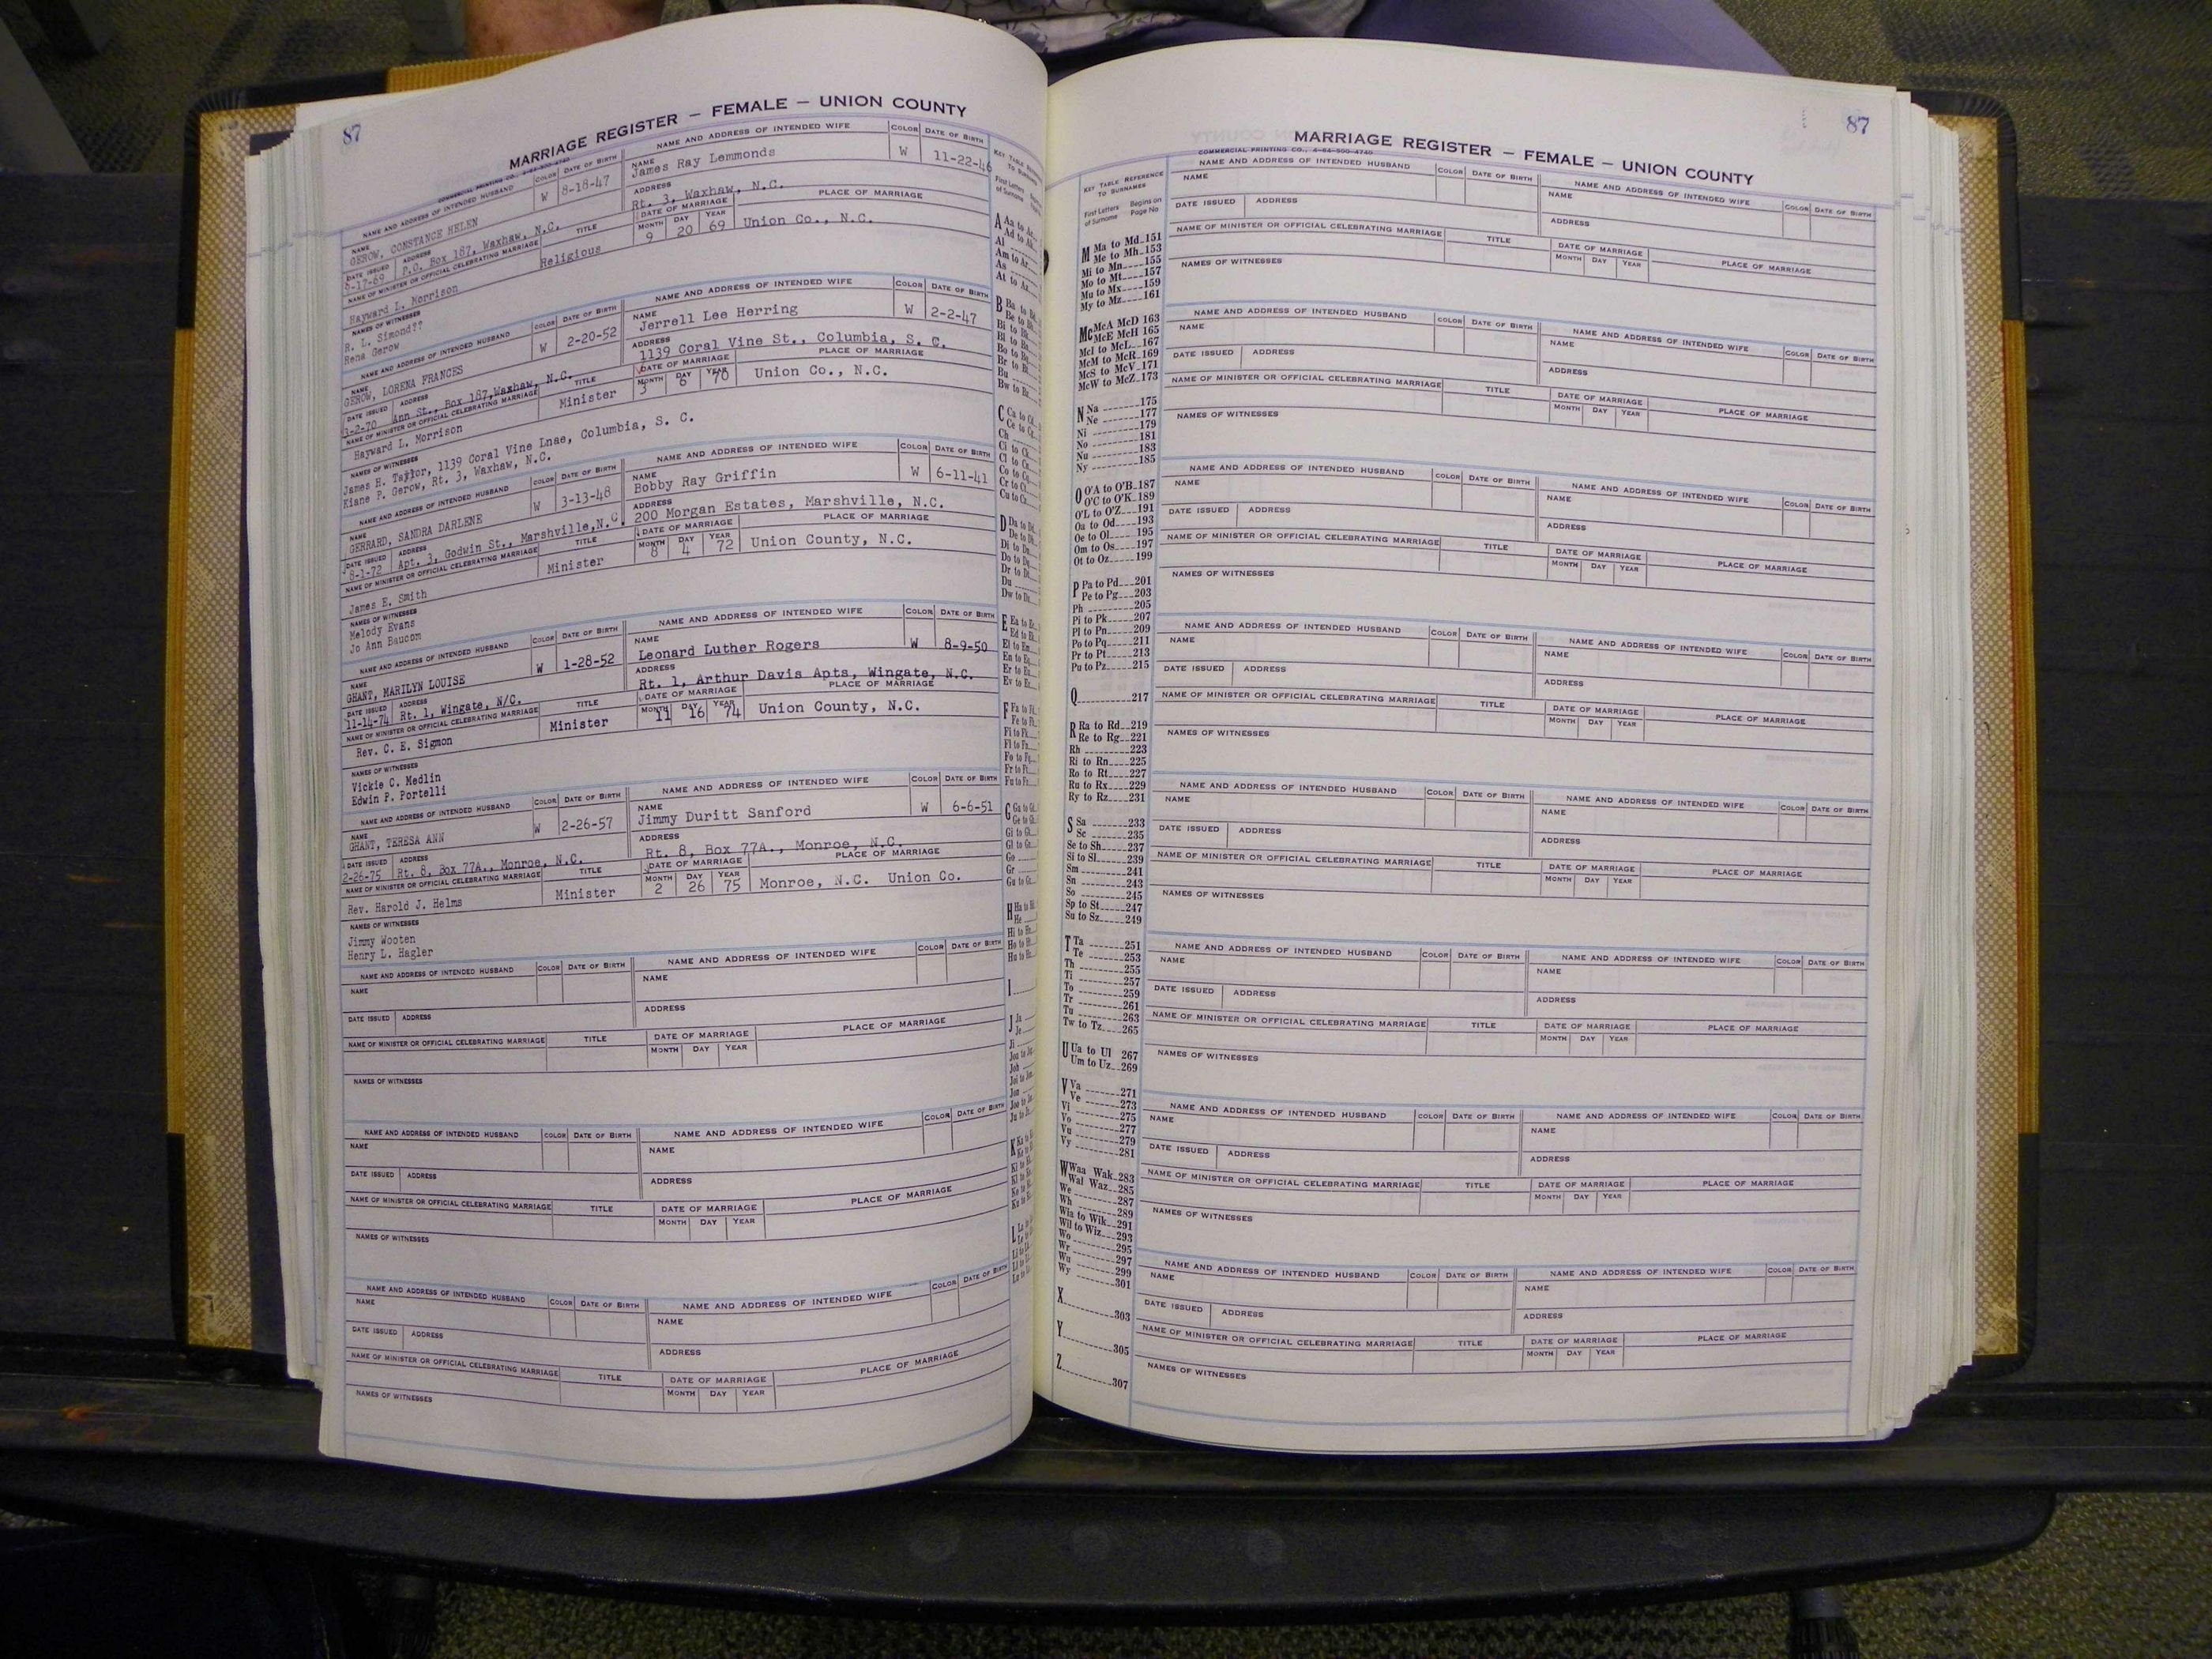 87
MARRIAGE REGISTER — FEMALE — UNION COUNTY
COMMERCIAL PRINTING CO., 4-64-500-4740
NAME AND ADDRESS OF INTENDED HUSBAND COLOR DATE OF BIRTH NAME AND ADDRESS OF INTENDED WIFE COLOR DATE OF BIRTH
NAME GEROW, CONSTANCE HELEN W 8-18-47 NAME James Ray Lemmonds W 11-22-46
DATE ISSUED 9-17-69 ADDRESS P.O. Box 187, Waxhaw, N.C. ADDRESS Rt. 3, Waxhaw, N.C.
NAME OF MINISTER OR OFFICIAL CELEBRATING MARRIAGE TITLE DATE OF MARRIAGE PLACE OF MARRIAGE
Hayward L. Morrison Religious MONTH 9 DAY 20 YEAR 69 Union Co., N.C.
NAMES OF WITNESSES
R. L. Simond??
Rena Gerow
NAME AND ADDRESS OF INTENDED HUSBAND COLOR DATE OF BIRTH NAME AND ADDRESS OF INTENDED WIFE COLOR DATE OF BIRTH
NAME GEROW, LORENA FRANCES W 2-20-52 NAME Jerrell Lee Herring W 2-2-47
DATE ISSUED 3-2-70 ADDRESS Ann St., Box 187,Waxhaw, N.C. ADDRESS 1139 Coral Vine St., Columbia, S. C.
NAME OF MINISTER OR OFFICIAL CELEBRATING MARRIAGE TITLE DATE OF MARRIAGE PLACE OF MARRIAGE
Hayward L. Morrison Minister MONTH 3 DAY 6 YEAR 70 Union Co., N.C.
NAMES OF WITNESSES
James H. Taylor, 1139 Coral Vine Lnae, Columbia, S. C.
Kiane P. Gerow, Rt. 3, Waxhaw, N.C.
NAME AND ADDRESS OF INTENDED HUSBAND COLOR DATE OF BIRTH NAME AND ADDRESS OF INTENDED WIFE COLOR DATE OF BIRTH
NAME GERRARD, SANDRA DARLENE W 3-13-48 NAME Bobby Ray Griffin W 6-11-41
DATE ISSUED 8-1-72 ADDRESS Apt. 3, Godwin St., Marshville,N.C. ADDRESS 200 Morgan Estates, Marshville, N.C.
NAME OF MINISTER OR OFFICIAL CELEBRATING MARRIAGE TITLE DATE OF MARRIAGE PLACE OF MARRIAGE
James E. Smith Minister MONTH 8 DAY 4 YEAR 72 Union County, N.C.
NAMES OF WITNESSES
Melody Evans
Jo Ann Baucom
NAME AND ADDRESS OF INTENDED HUSBAND COLOR DATE OF BIRTH NAME AND ADDRESS OF INTENDED WIFE COLOR DATE OF BIRTH
NAME GHANT, MARILYN LOUISE W 1-28-52 NAME Leonard Luther Rogers W 8-9-50
DATE ISSUED 11-14-74 ADDRESS Rt. 1, Wingate, N/C. ADDRESS Rt. 1, Arthur Davis Apts, Wingate, N.C.
NAME OF MINISTER OR OFFICIAL CELEBRATING MARRIAGE TITLE DATE OF MARRIAGE PLACE OF MARRIAGE
Rev. C. E. Sigmon Minister MONTH 11 DAY 16 YEAR 74 Union County, N.C.
NAMES OF WITNESSES
Vickie C. Medlin
Edwin P. Portelli
NAME AND ADDRESS OF INTENDED HUSBAND COLOR DATE OF BIRTH NAME AND ADDRESS OF INTENDED WIFE COLOR DATE OF BIRTH
NAME GHANT, TERESA ANN W 2-26-57 NAME Jimmy Duritt Sanford W 6-6-51
DATE ISSUED 2-26-75 ADDRESS Rt. 8, Box 77A., Monroe, N.C. ADDRESS Rt. 8, Box 77A., Monroe, N.C.
NAME OF MINISTER OR OFFICIAL CELEBRATING MARRIAGE TITLE DATE OF MARRIAGE PLACE OF MARRIAGE
Rev. Harold J. Helms Minister MONTH 2 DAY 26 YEAR 75 Monroe, N.C. Union Co.
NAMES OF WITNESSES
Jimmy Wooten
Henry L. Hagler
NAME AND ADDRESS OF INTENDED HUSBAND COLOR DATE OF BIRTH NAME AND ADDRESS OF INTENDED WIFE COLOR DATE OF BIRTH
NAME NAME
DATE ISSUED ADDRESS ADDRESS
NAME OF MINISTER OR OFFICIAL CELEBRATING MARRIAGE TITLE DATE OF MARRIAGE PLACE OF MARRIAGE
MONTH DAY YEAR
NAMES OF WITNESSES
NAME AND ADDRESS OF INTENDED HUSBAND COLOR DATE OF BIRTH NAME AND ADDRESS OF INTENDED WIFE COLOR DATE OF BIRTH
NAME NAME
DATE ISSUED ADDRESS ADDRESS
NAME OF MINISTER OR OFFICIAL CELEBRATING MARRIAGE TITLE DATE OF MARRIAGE PLACE OF MARRIAGE
MONTH DAY YEAR
NAMES OF WITNESSES
NAME AND ADDRESS OF INTENDED HUSBAND COLOR DATE OF BIRTH NAME AND ADDRESS OF INTENDED WIFE COLOR DATE OF BIRTH
NAME NAME
DATE ISSUED ADDRESS ADDRESS
NAME OF MINISTER OR OFFICIAL CELEBRATING MARRIAGE TITLE DATE OF MARRIAGE PLACE OF MARRIAGE
MONTH DAY YEAR
NAMES OF WITNESSES
87
MARRIAGE REGISTER — FEMALE — UNION COUNTY
COMMERCIAL PRINTING CO., 4-64-500-4740
KEY TABLE REFERENCE
TO SURNAMES
First Letters of Surname Begins on Page No
M Ma to Md 151
Me to Mh 153
Mi to Mn 155
Mo to Mt 157
Mu to Mx 159
My to Mz 161
Mc McA McD 163
McE McH 165
McI to McL 167
McM to McR 169
McS to McV 171
McW to McZ 173
N Na 175
Ne 177
Ni 179
No 181
Nu 183
Ny 185
O O'A to O'B 187
O'C to O'K 189
O'L to O'Z 191
Oa to Od 193
Oe to Ol 195
Om to Os 197
Ot to Oz 199
P Pa to Pd 201
Pe to Pg 203
Ph 205
Pi to Pk 207
Pl to Pn 209
Po to Pq 211
Pr to Pt 213
Pu to Pz 215
Q 217
R Ra to Rd 219
Re to Rg 221
Rh 223
Ri to Rn 225
Ro to Rt 227
Ru to Rx 229
Ry to Rz 231
S Sa 233
Sc 235
Se to Sh 237
Si to Sl 239
Sm 241
Sn 243
So 245
Sp to St 247
Su to Sz 249
T Ta 251
Te 253
Th 255
Ti 257
To 259
Tr 261
Tu 263
Tw to Tz 265
U Ua to Ul 267
Um to Uz 269
V Va 271
Ve 273
Vi 275
Vo 277
Vu 279
Vy 281
W Waa Wak 283
Wal Waz 285
We 287
Wh 289
Wia to Wik 291
Wil to Wiz 293
Wo 295
Wr 297
Wu 299
Wy 301
X 303
Y 305
Z 307
NAME AND ADDRESS OF INTENDED HUSBAND COLOR DATE OF BIRTH NAME AND ADDRESS OF INTENDED WIFE COLOR DATE OF BIRTH
NAME NAME
DATE ISSUED ADDRESS ADDRESS
NAME OF MINISTER OR OFFICIAL CELEBRATING MARRIAGE TITLE DATE OF MARRIAGE PLACE OF MARRIAGE
MONTH DAY YEAR
NAMES OF WITNESSES
NAME AND ADDRESS OF INTENDED HUSBAND COLOR DATE OF BIRTH NAME AND ADDRESS OF INTENDED WIFE COLOR DATE OF BIRTH
NAME NAME
DATE ISSUED ADDRESS ADDRESS
NAME OF MINISTER OR OFFICIAL CELEBRATING MARRIAGE TITLE DATE OF MARRIAGE PLACE OF MARRIAGE
MONTH DAY YEAR
NAMES OF WITNESSES
NAME AND ADDRESS OF INTENDED HUSBAND COLOR DATE OF BIRTH NAME AND ADDRESS OF INTENDED WIFE COLOR DATE OF BIRTH
NAME NAME
DATE ISSUED ADDRESS ADDRESS
NAME OF MINISTER OR OFFICIAL CELEBRATING MARRIAGE TITLE DATE OF MARRIAGE PLACE OF MARRIAGE
MONTH DAY YEAR
NAMES OF WITNESSES
NAME AND ADDRESS OF INTENDED HUSBAND COLOR DATE OF BIRTH NAME AND ADDRESS OF INTENDED WIFE COLOR DATE OF BIRTH
NAME NAME
DATE ISSUED ADDRESS ADDRESS
NAME OF MINISTER OR OFFICIAL CELEBRATING MARRIAGE TITLE DATE OF MARRIAGE PLACE OF MARRIAGE
MONTH DAY YEAR
NAMES OF WITNESSES
NAME AND ADDRESS OF INTENDED HUSBAND COLOR DATE OF BIRTH NAME AND ADDRESS OF INTENDED WIFE COLOR DATE OF BIRTH
NAME NAME
DATE ISSUED ADDRESS ADDRESS
NAME OF MINISTER OR OFFICIAL CELEBRATING MARRIAGE TITLE DATE OF MARRIAGE PLACE OF MARRIAGE
MONTH DAY YEAR
NAMES OF WITNESSES
NAME AND ADDRESS OF INTENDED HUSBAND COLOR DATE OF BIRTH NAME AND ADDRESS OF INTENDED WIFE COLOR DATE OF BIRTH
NAME NAME
DATE ISSUED ADDRESS ADDRESS
NAME OF MINISTER OR OFFICIAL CELEBRATING MARRIAGE TITLE DATE OF MARRIAGE PLACE OF MARRIAGE
MONTH DAY YEAR
NAMES OF WITNESSES
NAME AND ADDRESS OF INTENDED HUSBAND COLOR DATE OF BIRTH NAME AND ADDRESS OF INTENDED WIFE COLOR DATE OF BIRTH
NAME NAME
DATE ISSUED ADDRESS ADDRESS
NAME OF MINISTER OR OFFICIAL CELEBRATING MARRIAGE TITLE DATE OF MARRIAGE PLACE OF MARRIAGE
MONTH DAY YEAR
NAMES OF WITNESSES
NAME AND ADDRESS OF INTENDED HUSBAND COLOR DATE OF BIRTH NAME AND ADDRESS OF INTENDED WIFE COLOR DATE OF BIRTH
NAME NAME
DATE ISSUED ADDRESS ADDRESS
NAME OF MINISTER OR OFFICIAL CELEBRATING MARRIAGE TITLE DATE OF MARRIAGE PLACE OF MARRIAGE
MONTH DAY YEAR
NAMES OF WITNESSES